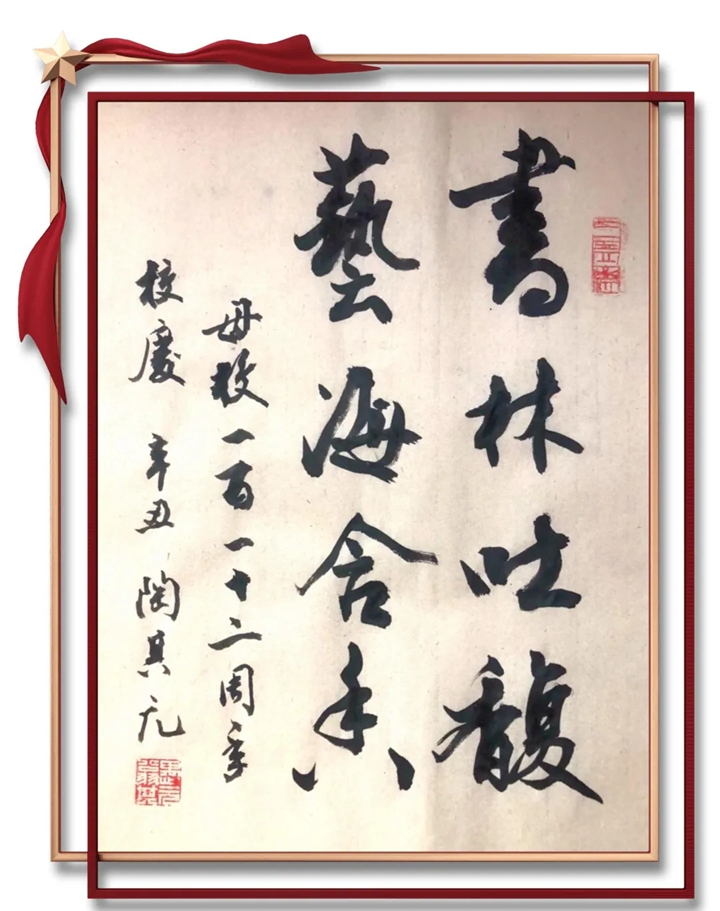 書林吐馥
藝海含香
母校一百一十二周年
校慶 辛丑 陶其元